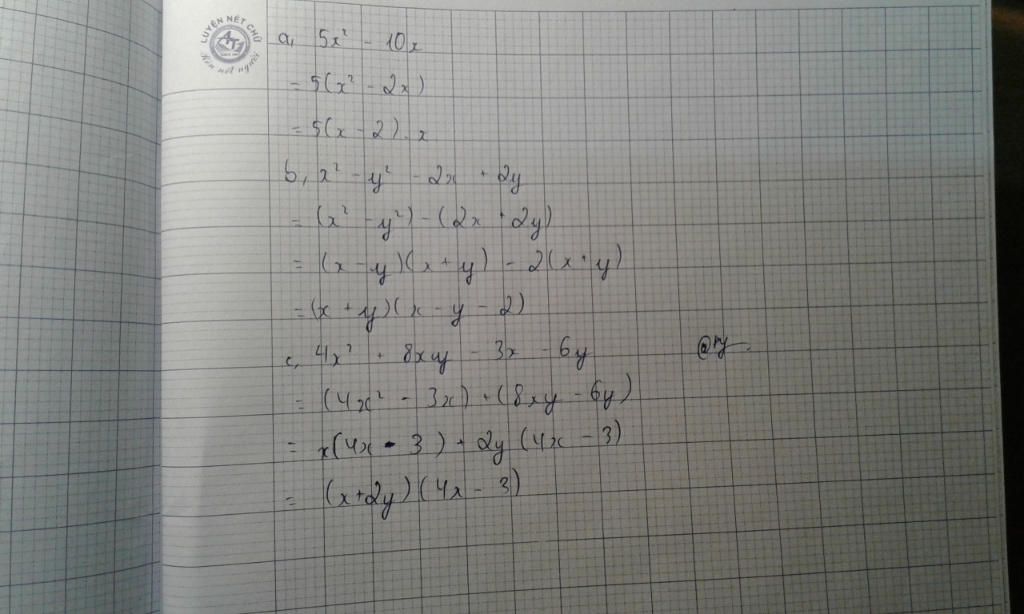 LUYỆN NÉT CHỮ
Rèn nết người
a, 5x² - 10x
= 5(x² - 2x)
= 5(x - 2).x
b, x² - y² - 2x + 2y
= (x² - y²) - (2x + 2y)
= (x - y)(x + y) - 2(x + y)
= (x + y)(x - y - 2)
c, 4x² + 8xy - 3x - 6y
= (4x² - 3x) + (8xy - 6y)
= x(4x - 3) + 2y (4x - 3)
= (x+2y)(4x - 3)